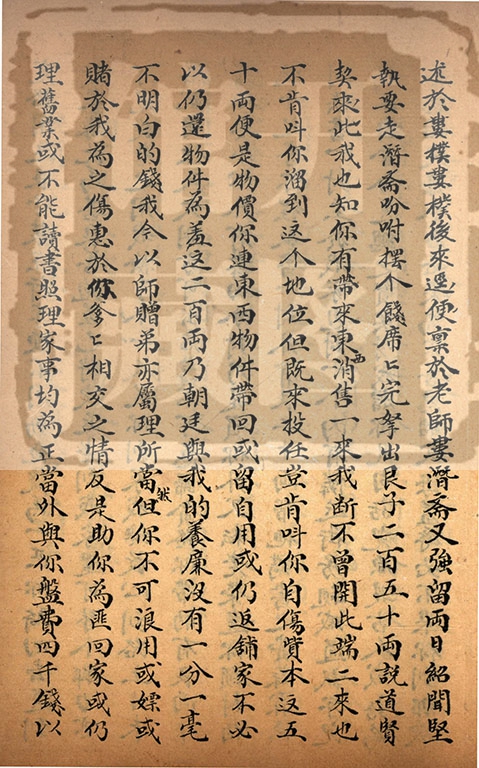 述於婁樸婁樸後來逕便稟於老師婁潛斎又強留兩日紹聞堅
執要走潛斎吩咐擺个餞席〻完拏出艮子二百五十両説道賢
契來此我也知你有帶來東西消售一來我断不曾開此端二來也
不肯呌你溜到这个地位但既來投任豈肯呌你自傷貲本这五
十両便是物價你連東西物件帶回或留自用或仍返舖家不必
以仍還物件為羞这二百両乃朝廷與我的養廉没有一分一毫
不明白的錢我今以師贈弟亦屬理所當然但你不可浪用或嫖或
賭於我為之傷惠於你爹〻相交之情反是助你為匪回家或仍
理舊業或不能讀書照理家事均為正當外與你盤費四千錢以